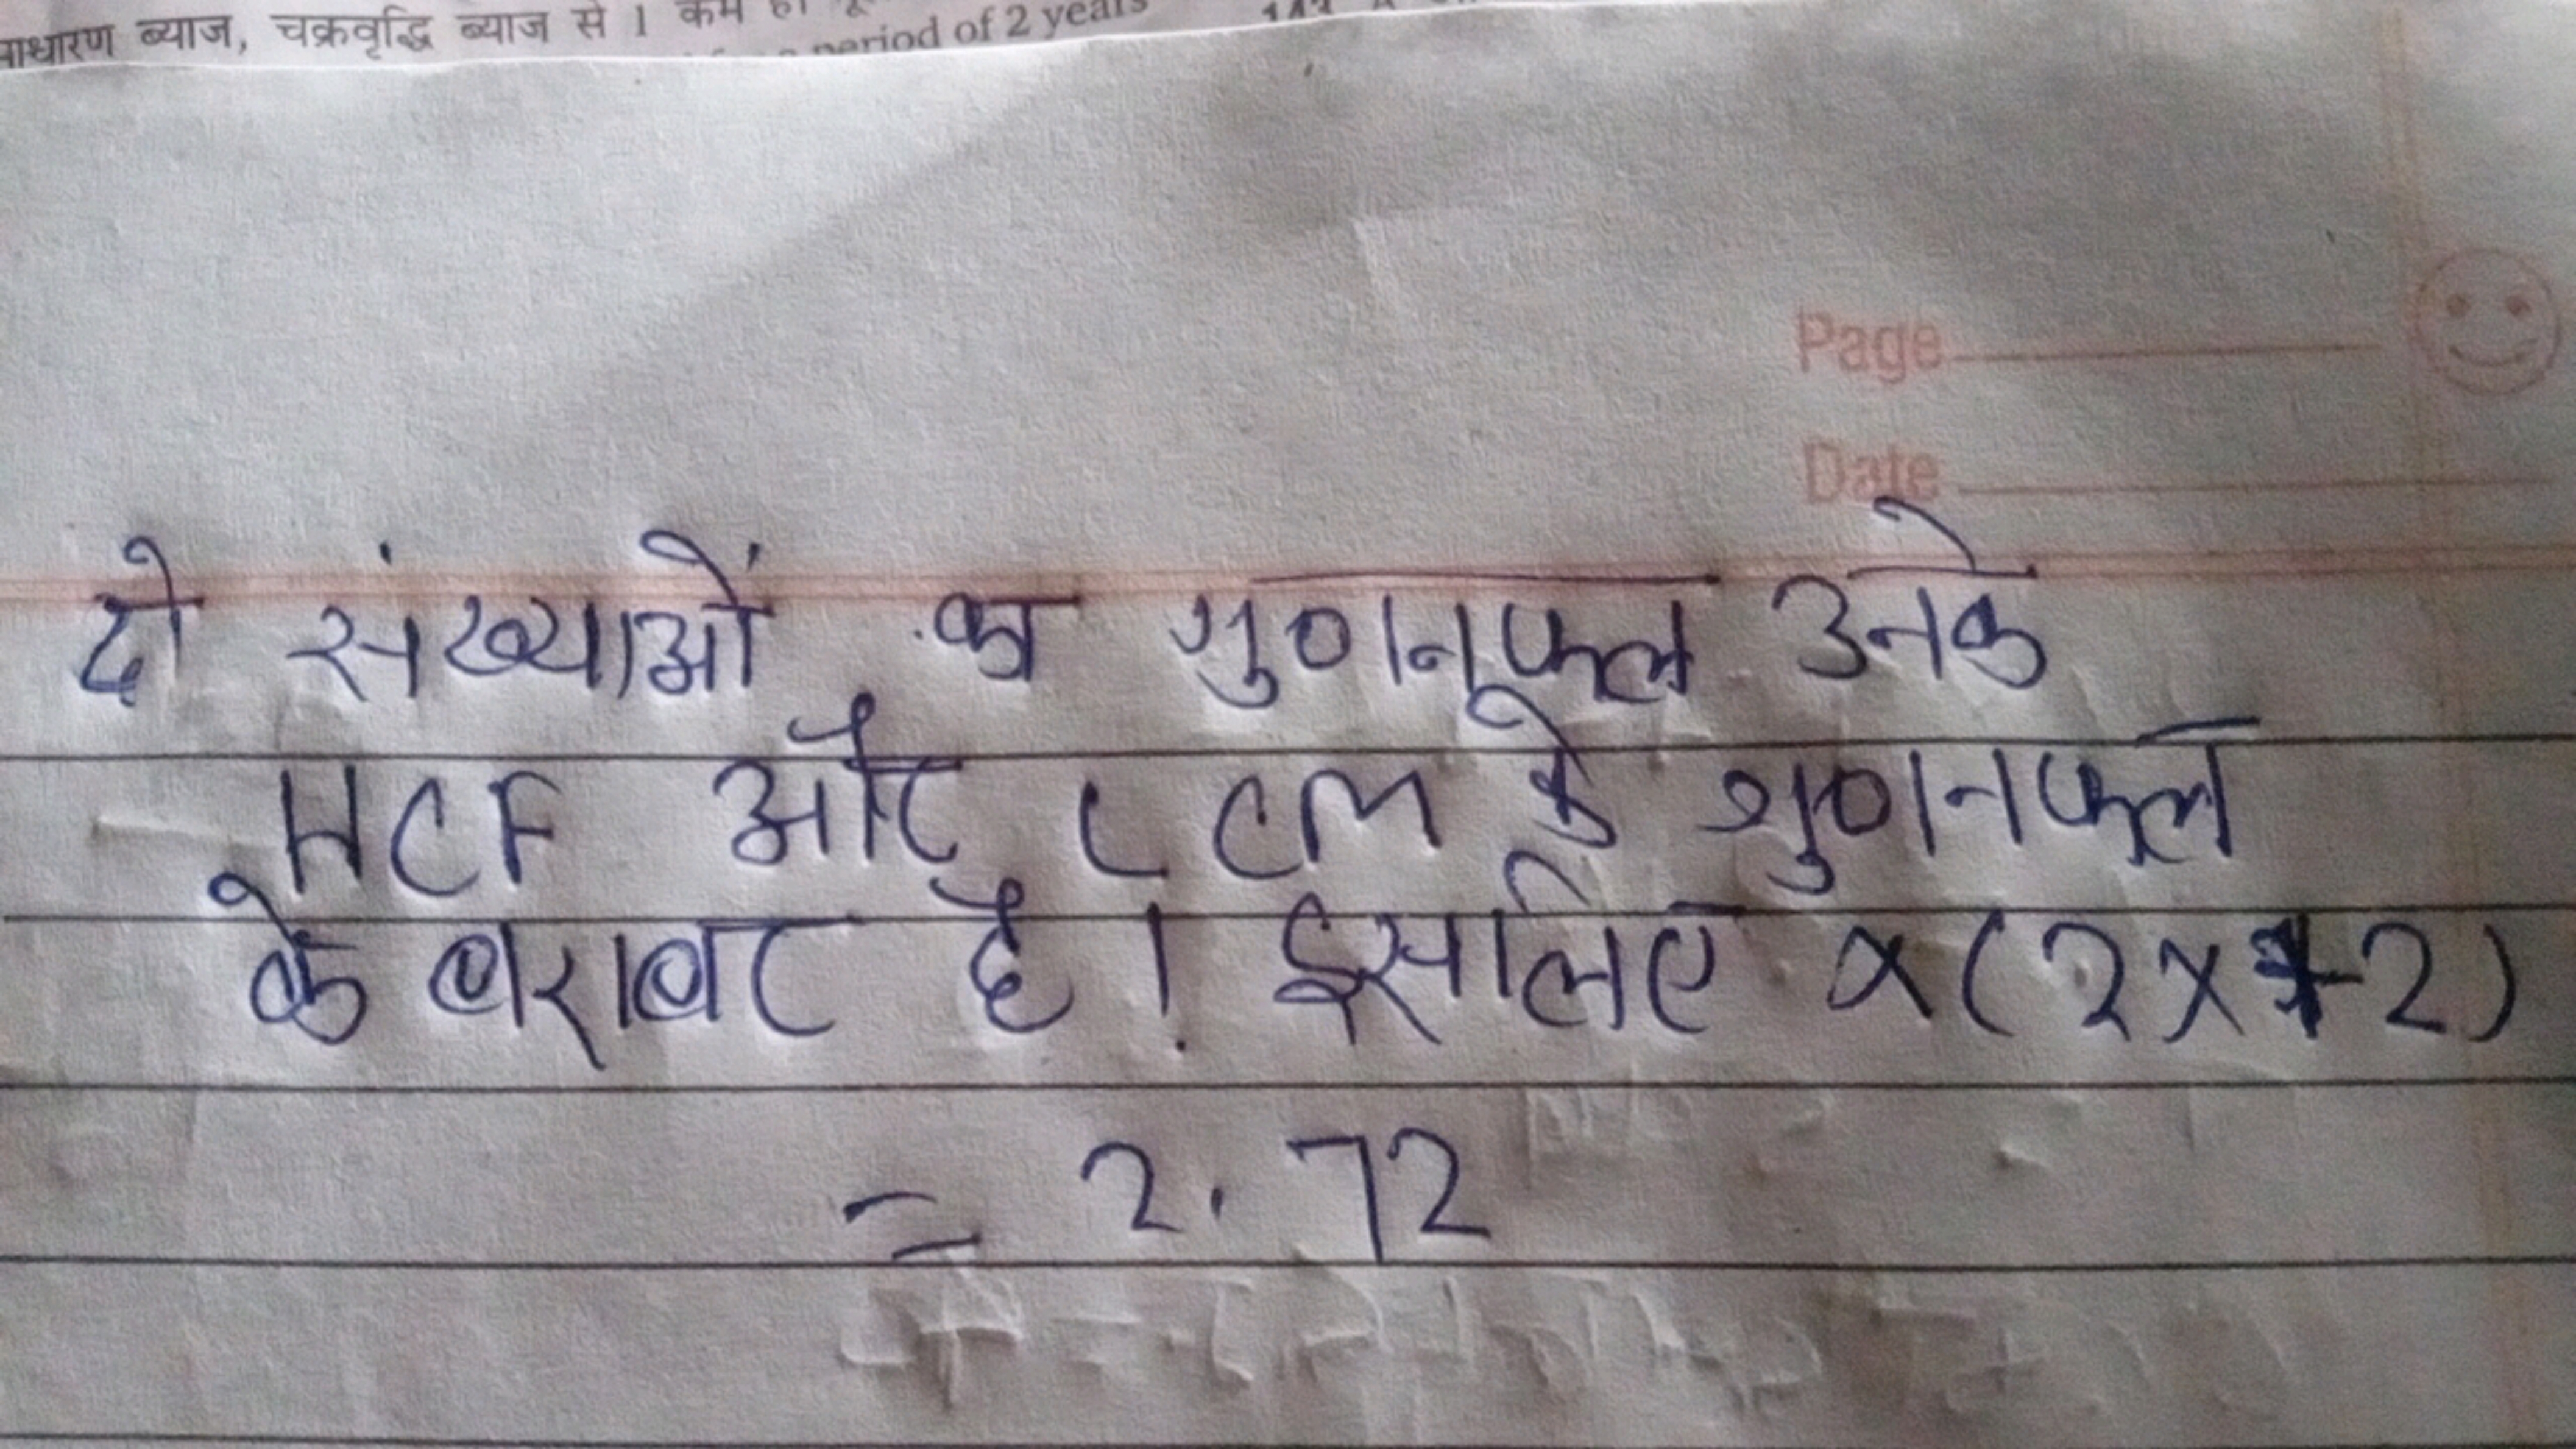 साधारण ब्याज, चक्रवृद्धि ब्याज से 1 कम हो
period of 2 years
Page
Date
दो संख्याओं का गुणनफल उनके
HCF और LCM के गुणनफल
के बराबर है। इसलिए x(2x+2)
= 2.72